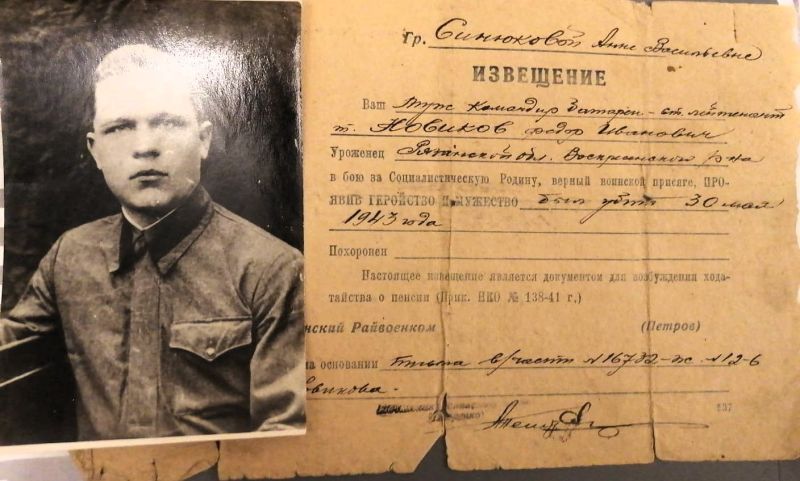 Гр. Синюковой Анне Васильевне
ИЗВЕЩЕНИЕ
Ваш муж командир батареи - ст. лейтенант
т. Новиков Федор Иванович
Уроженец Рязанской обл. Воскресенского р-на
в бою за Социалистическую Родину, верный воинской присяге, ПРО-
ЯВИВ ГЕРОЙСТВО И МУЖЕСТВО был убит 30 мая
1943 года
Похоронен
Настоящее извещение является документом для возбуждения хода-
тайства о пенсии (Прик. НКО № 138-41 г.)
нский Райвоенком (Петров)
на основании письма в/части №16732-ж №12-6
овикова.